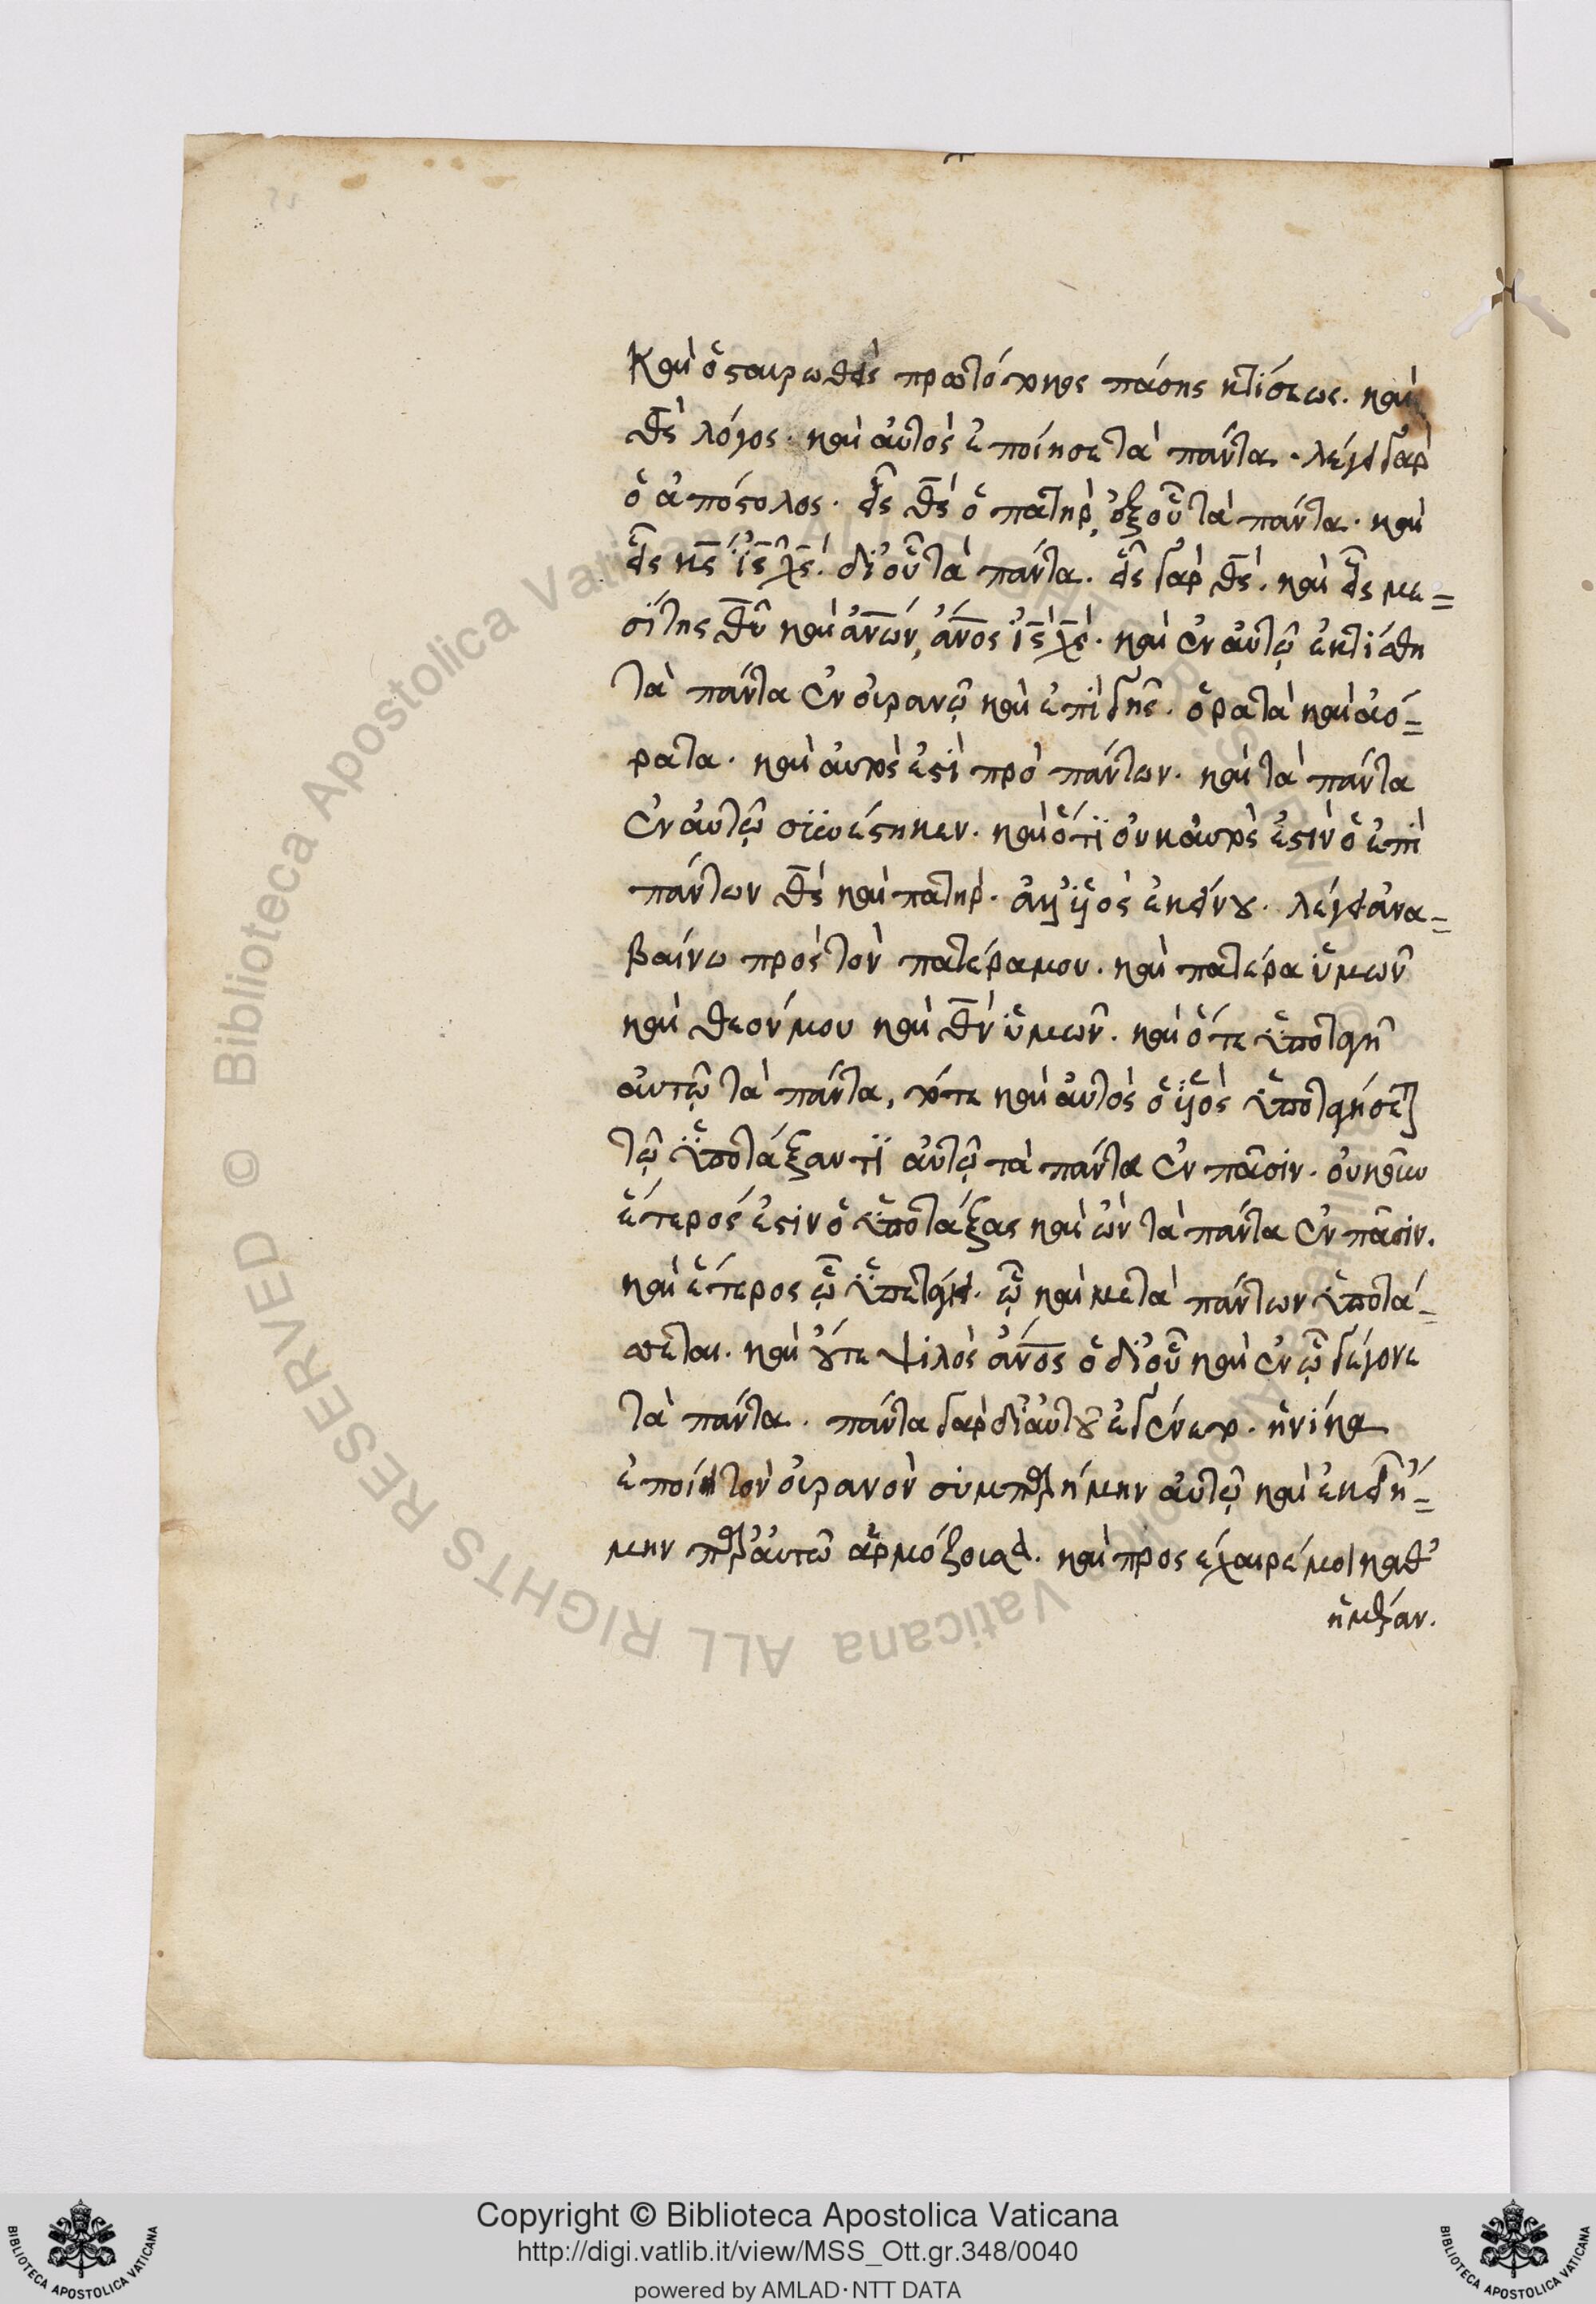 Καὶ ὁ σταυρωθεὶς πρωτότοκος πάσης κτίσεως. καὶ
θς̅ λόγος. καὶ αὐτὸς ἐποίησε τὰ πάντα. λέγει γὰρ
ὁ ἀπόστολος. εἷς θς̅ ὁ πατὴρ, ἐξ οὗ τὰ πάντα. καὶ
εἷς κς̅ ἰς̅ χς̅. δι' οὗ τὰ πάντα. εἷς γὰρ θς̅. καὶ εἷς με=
σίτης θυ̅ καὶ ἀνω̅ν, ἀνο̅ς ἰς̅ χς̅. καὶ ἐν αὐτῷ ἐκτίσθη
τὰ πάντα ἐν οὐρανῷ καὶ ἐπὶ γῆς. ὁρατὰ καὶ ἀό=
ρατα. καὶ αὐτός ἐστὶ πρὸ πάντων. καὶ τὰ πάντα
ἐν αὐτῷ συνέστηκεν. καὶ ὅτι οὐκ αὐτός ἐστιν ὁ ἐπὶ
πάντων θς̅ καὶ πατὴρ. ἀλλ' υἱὸς ἐκείνου. λέγει ἀνα=
βαίνω πρὸς τὸν πατέρα μου. καὶ πατέρα ὑμῶν
καὶ θεόν μου καὶ θν̅ ὑμῶν. καὶ ὅτε ὑποταγῇ
αὐτῷ τὰ πάντα, τότε καὶ αὐτὸς ὁ υἱὸς ὑποταγήσεται
τῷ ὑποτάξαντι αὐτῷ τὰ πάντα ἐν πᾶσιν. οὐκοῦν
ἕτερός ἐστιν ὁ ὑποτάξας καὶ ὢν τὰ πάντα ἐν πᾶσιν.
καὶ ἕτερος ᾧ ὑπετάγη. ᾧ καὶ μετὰ πάντων ὑποτά=
σσεται. καὶ οὔτε ψιλὸς ἀνο̅ς ὁ δι' οὗ καὶ ἐν ᾧ γέγονε
τὰ πάντα. πάντα γὰρ δι' αὐτοῦ ἐγένετο. ἡνίκα
ἐποίει τὸν οὐρανὸν συμπαρήμην αὐτῷ καὶ ἐκεῖ ἤ=
μην παρ' αὐτῷ ἁρμόζουσα. καὶ προσέχαιρέ μοι καθ'
ἡμέραν.